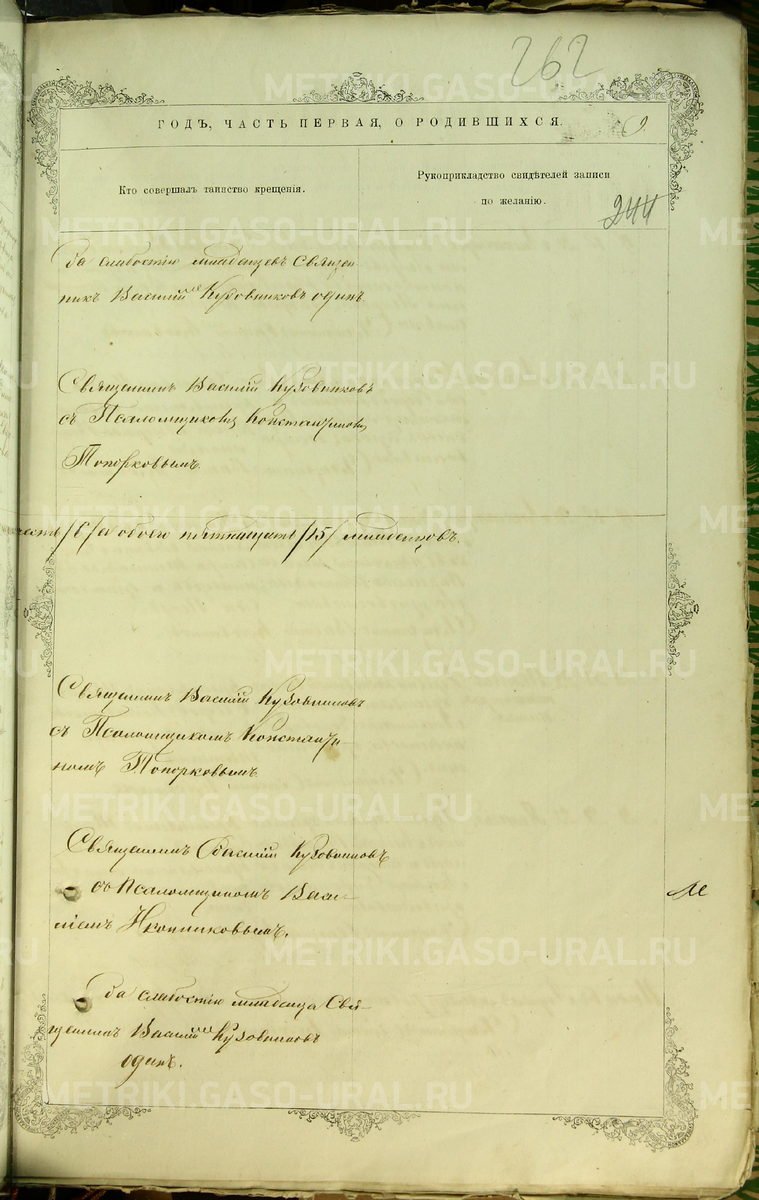 262
ГОДЪ, ЧАСТЬ ПЕРВАЯ, О РОДИВШИХСЯ.
9.
Кто совершалъ таинство крещенія.
Рукоприкладство свидѣтелей записи
по желанію.
244
За слабостію младенцевъ Священ
никъ Василій Кузовниковъ одинъ
Священникъ Василій Кузовниковъ
съ Псаломщикомъ Константиномъ
Топорковымъ
/6/ а обоего пятнадцать /15/ младенцовъ.
Священникъ Василій Кузовниковъ
съ Псаломщикомъ Константи
номъ Топорковымъ
Священникъ Василій Кузовниковъ
съ Псаломщикомъ Васи
ліемъ Иконниковымъ.
За слабостію младенца Свя
щенникъ Василій Кузовниковъ
одинъ.
METRIKI.GASO-URAL.RU